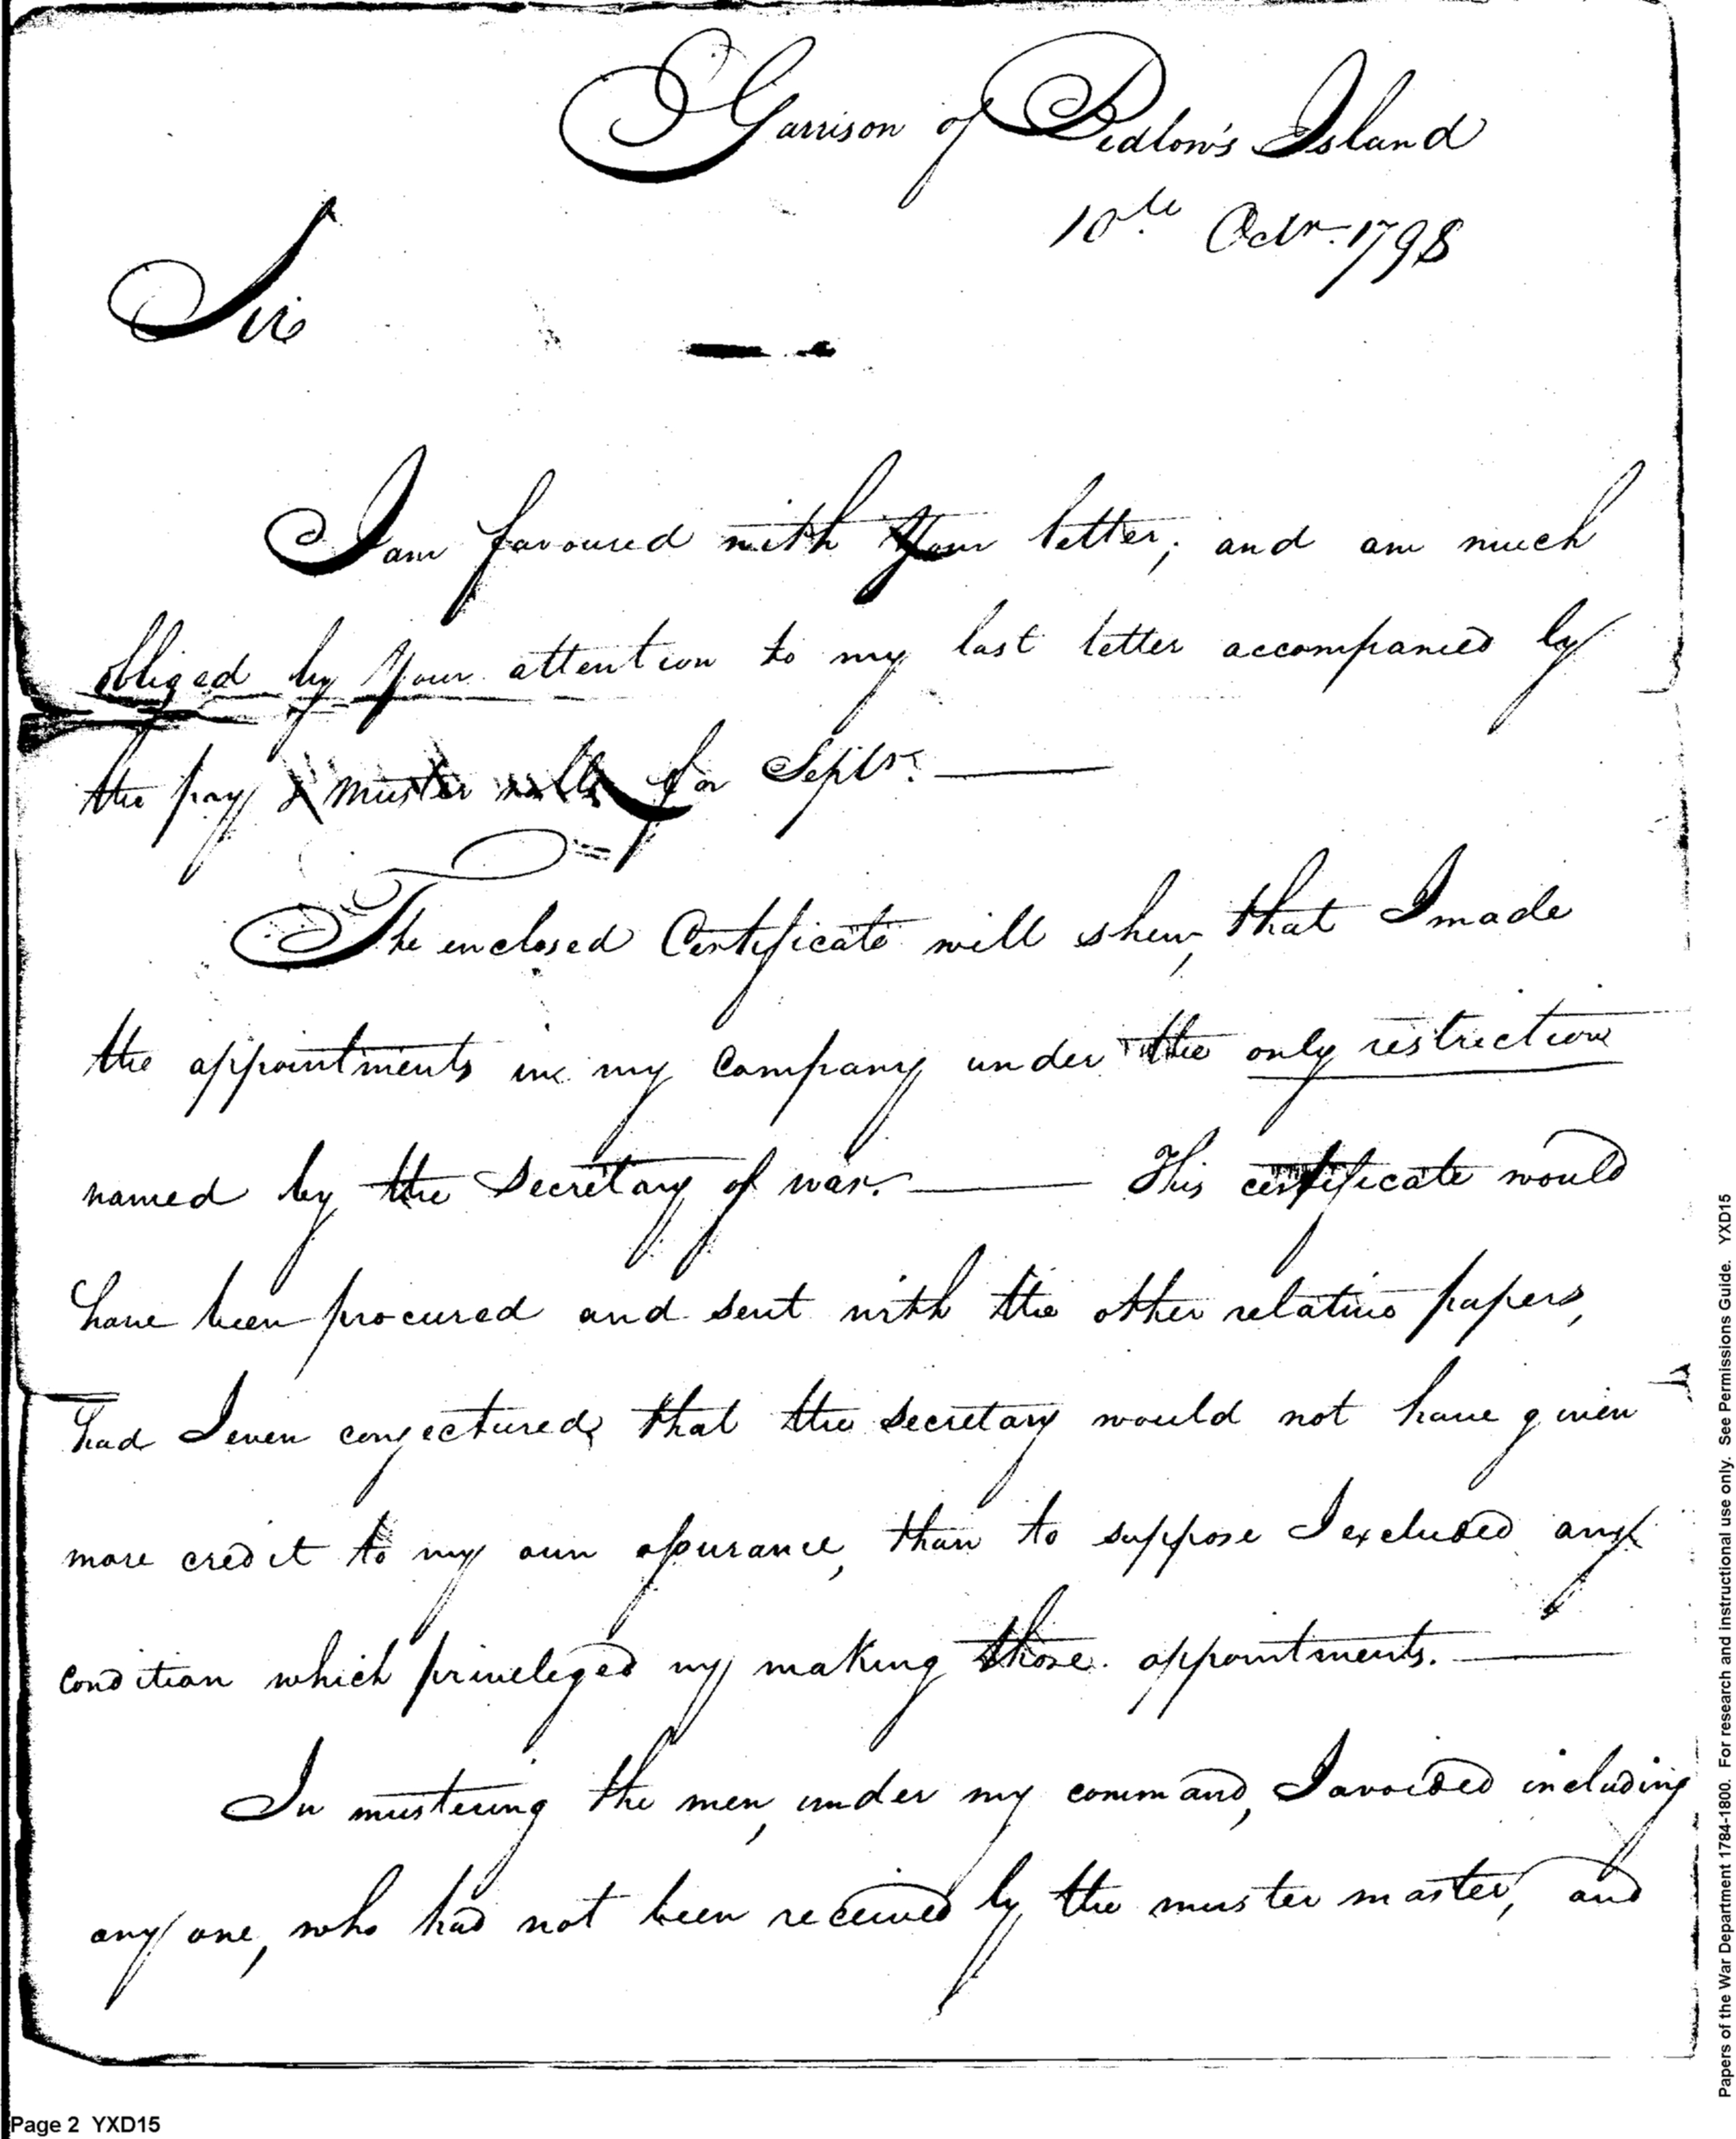 Garrison of Bedlow's Island
10th Octr. 1798
Sir
I am favoured with your letter; and am much
obliged by your attention to my last letter accompanied by
the pay & muster rolls for Septr.
The enclosed Certificate will shew, that I made
the appointments in my Company under the only restriction
named by the Secretary of war. This certificate would
have been procured and sent with the other relative papers,
had I even conjectured, that the Secretary would not have given
more credit to my own assurance, than to suppose I excluded any
condition which priveleged my making those appointments.
In mustering the men, under my command, I avoided including
any one, who had not been received by the muster master, and
Page 2 YXD15
Papers of the War Department 1784-1800. For research and instructional use only. See Permissions Guide. YXD15